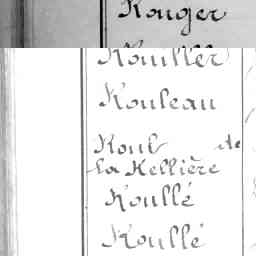 Rouger
Rouiller
Rouleau
Roul de
la Rellière
Roullé
Roullé